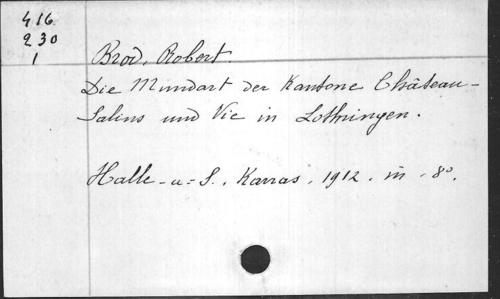 416
230
1
Brod, Robert.
Die Mundart der Kantone Château-
Salins und Vic in Lothringen.
Halle-a-S., Karras, 1912. in-8°.